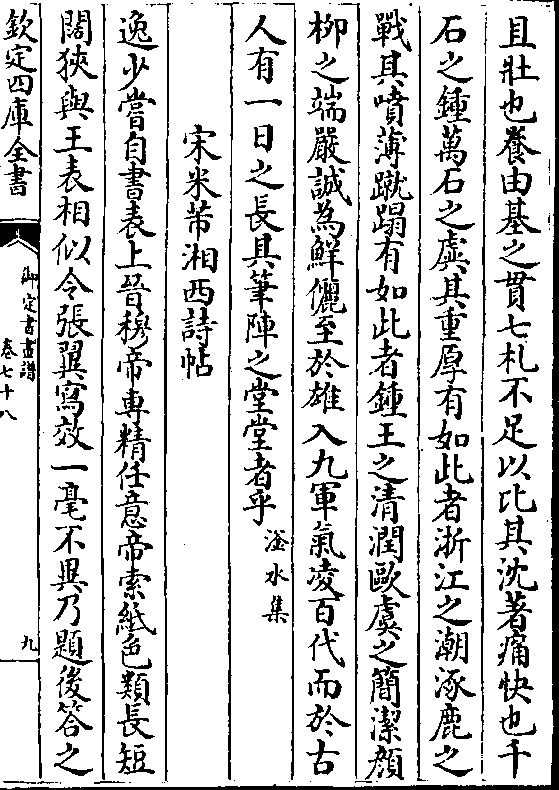 且壯也養由基之貫七札不足以比其沈著痛快也千
石之鍾萬石之虡其重厚有如此者浙江之潮涿鹿之
戰其噴薄蹴蹋有如此者鍾王之清潤歐虞之簡潔顔
柳之端嚴誠為鮮儷至於雄入九軍氣凌百代而於古
人有一日之長具筆陣之堂堂者乎滏水集
宋米芾湘西詩帖
逸少嘗自書表上晉穆帝專精任意帝索紙色類長短
闊狹與王表相似令張翼寫效一毫不異乃題後答之
欽定四庫全書
御定書畫譜
卷七十八
九